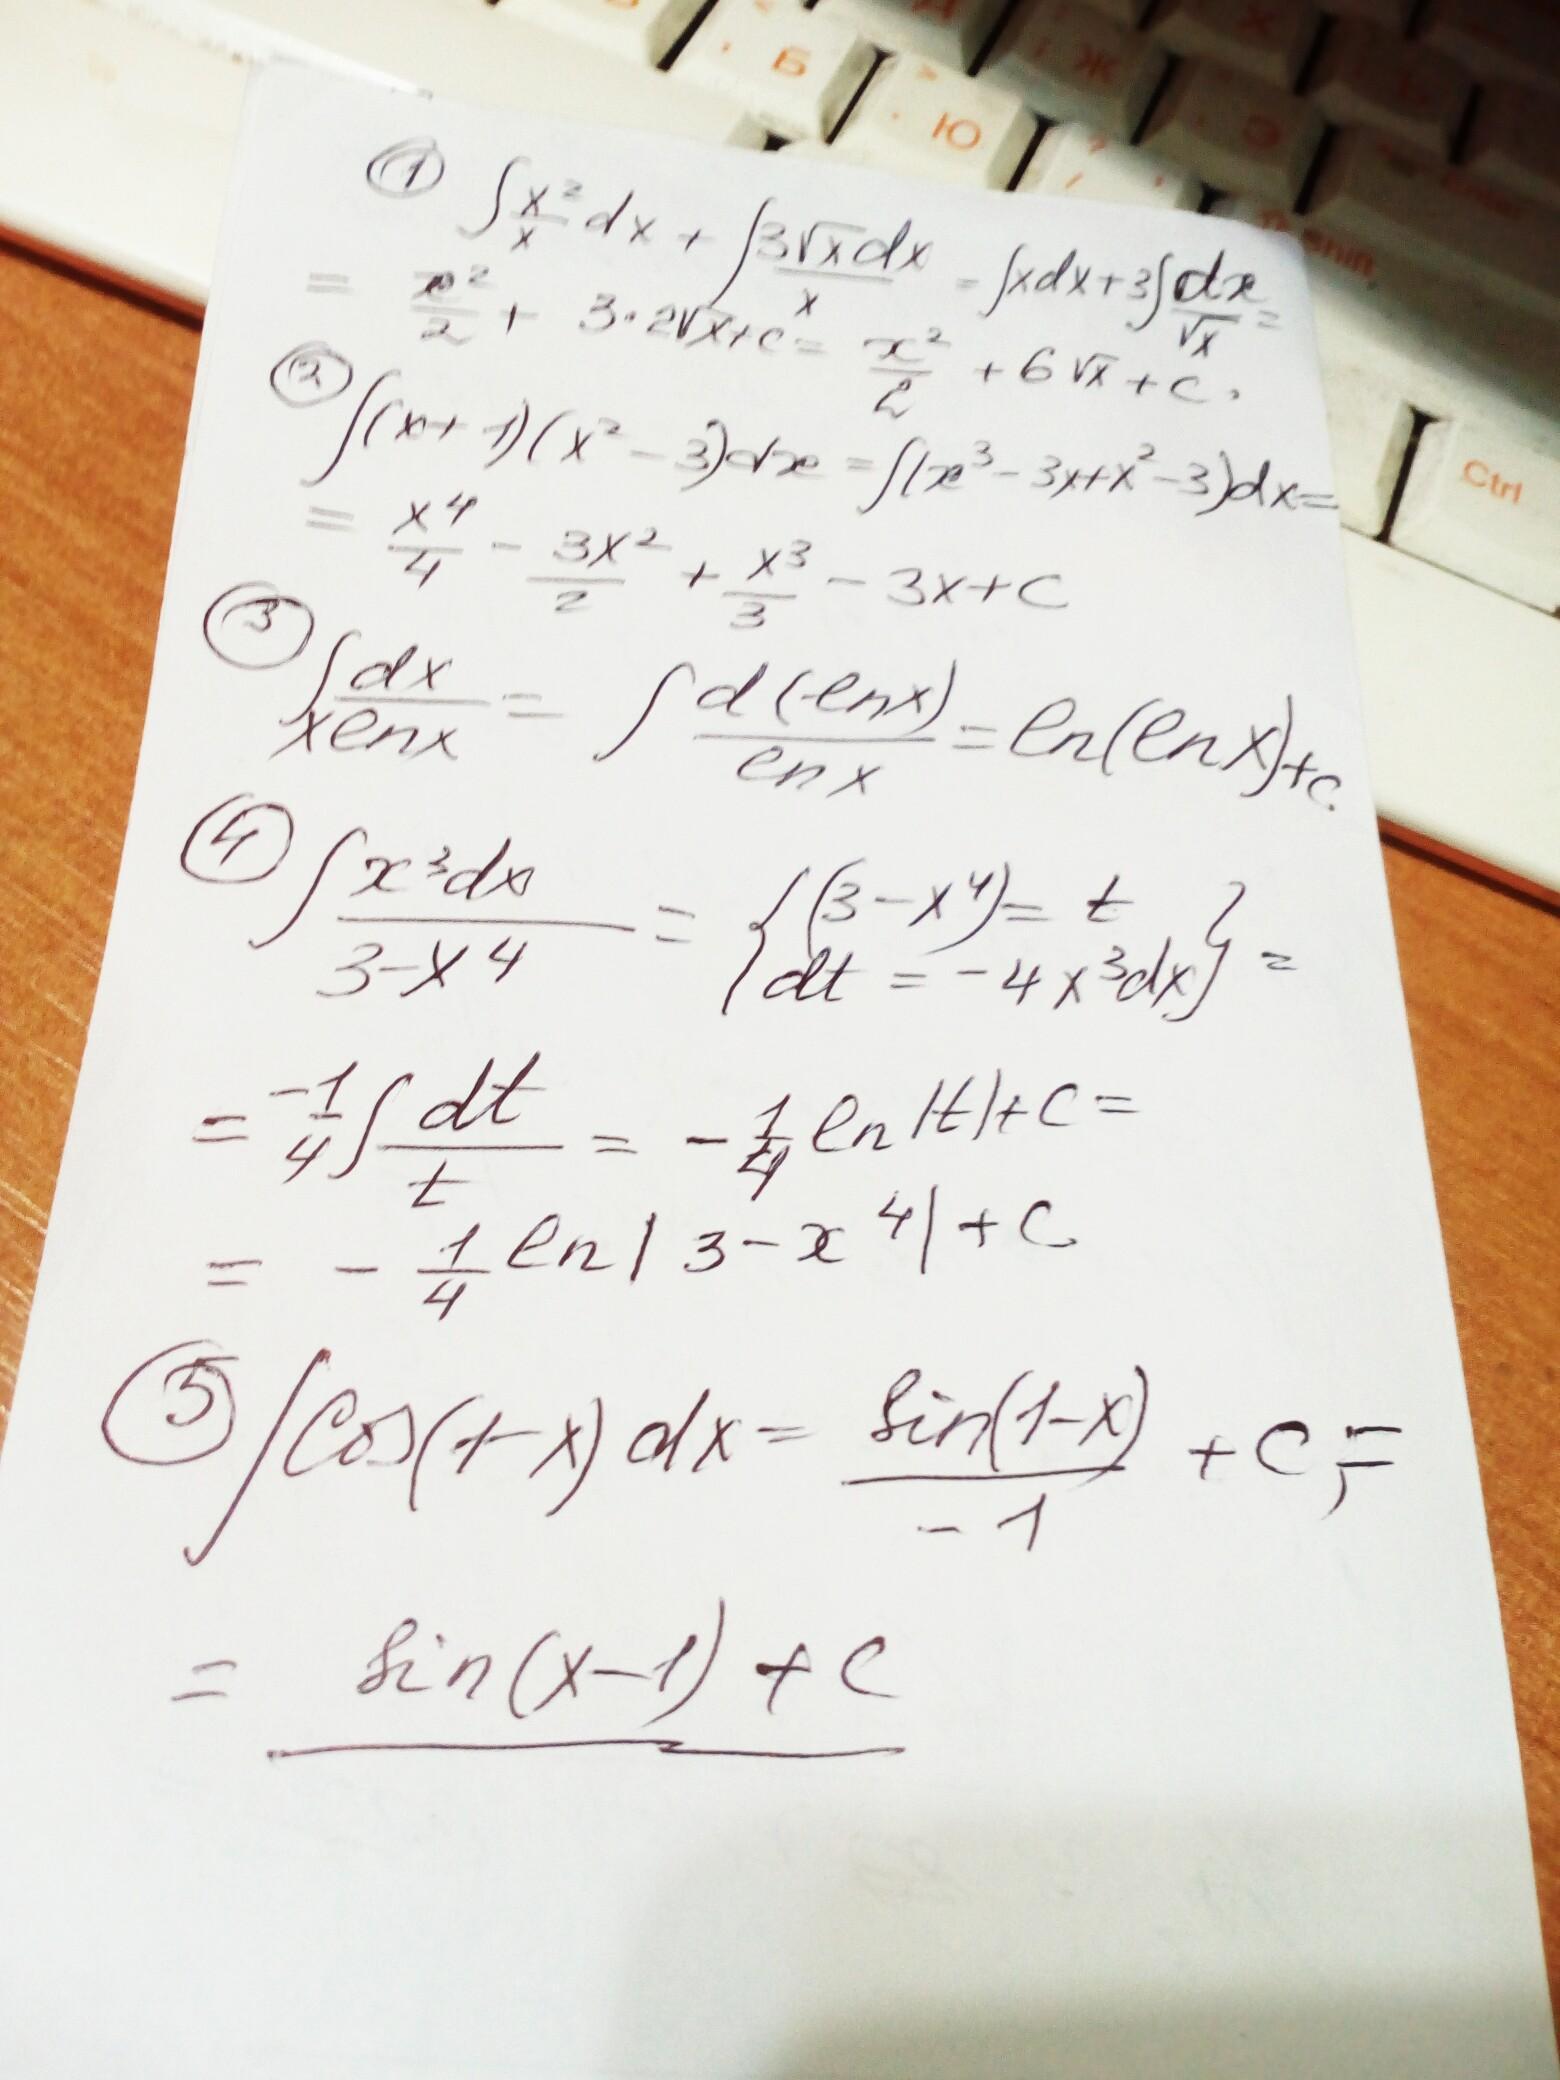 Б
Ю
Ж
Э
Х
Ъ
Ctrl
① ∫ x²/x dx + ∫ 3√x dx / x = ∫xdx + 3∫ dx/√x =
= x²/2 + 3·2√x + C = x²/2 + 6√x + C.
② ∫(x+1)(x²-3)dx = ∫(x³-3x+x²-3)dx =
= x⁴/4 - 3x²/2 + x³/3 - 3x + C
③ ∫ dx / xlnx = ∫ d(lnx) / lnx = ln(lnx) + C
④ ∫ x³dx / 3-x⁴ = { (3-x⁴) = t
dt = -4x³dx } =
= -1/4 ∫ dt/t = - 1/4 ln|t| + C =
= - 1/4 ln|3-x⁴| + C
⑤ ∫Cos(1-x)dx = sin(1-x) / -1 + C; =
= sin(x-1) + C